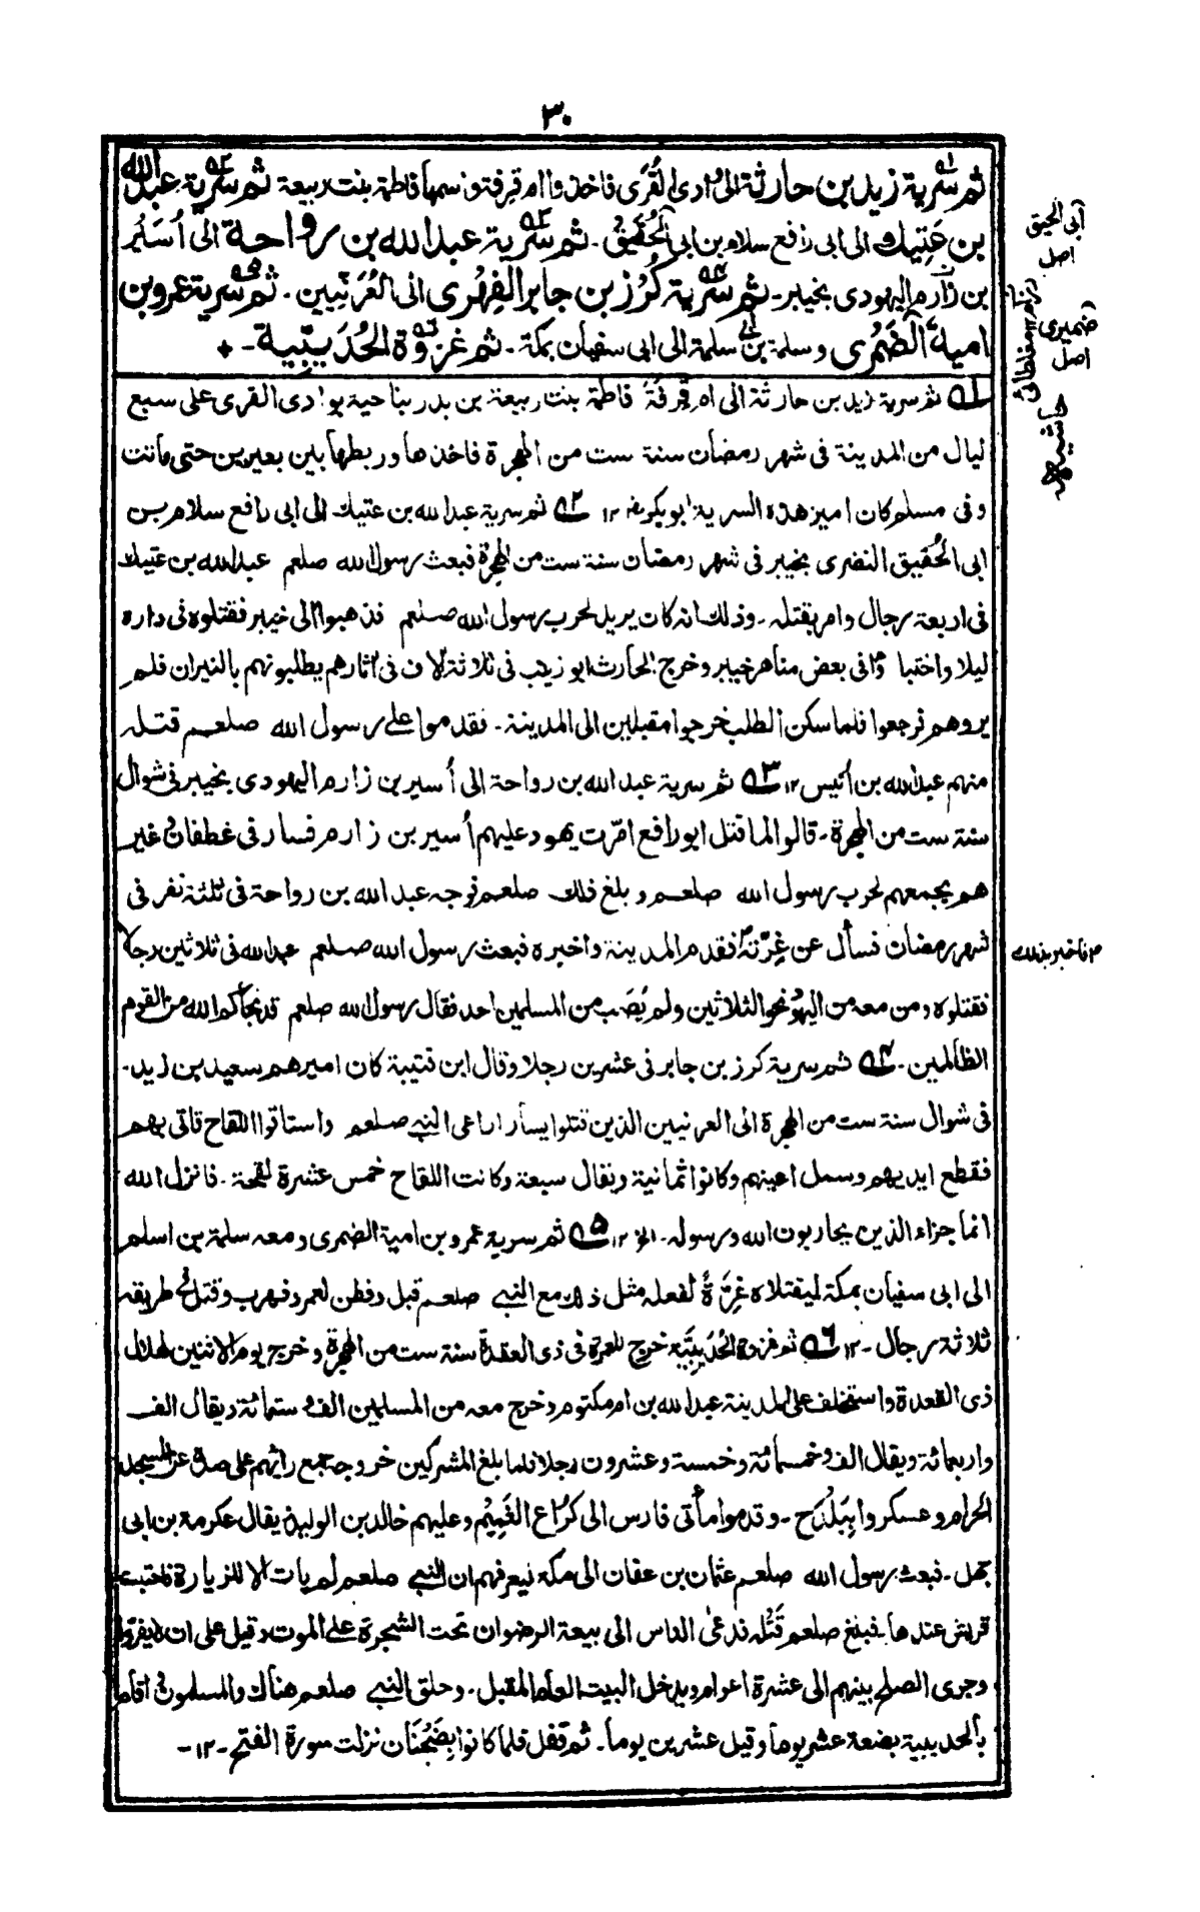 ٣٠
ثم سرية زيد بن حارثة الى وادى القُرَى فاخذوا ام قِرفة واسمها فاطمة بنت ربيعة ثم سرية عبد الله
بن عَتِيك الى ابى رافع سلام بن ابى الحُقَيق ـ ثم سرية عبد الله بن رواحة الى اُسَيْر
بن زارم اليهودى بخيبر ـ ثم سرية كُرْز بن جابر الفِهْرى الى العُرَنِيين ـ ثم سرية عمرو بن
امية الضَمْرى وسلمة بن سلمة الى ابى سفيان بمكة ـ ثم غزوة الحُدَيبِيّة ـ
٥١ ثم سرية زيد بن حارثة الى ام قِرفَةَ فاطمة بنت ربيعة بن بدر بناحية بوادى القرى على سبع
ليال من المدينة فى شهر رمضان سنة ست من الهجرة فاخذها وربطها بين بعيرين حتى ماتت
وفى مسلم كان امير هذه السرية ابو بكر ١٢ ٥٢ ثم سرية عبد الله بن عتيك الى ابى رافع سلام بن
ابى الحُقيق النضرى بخيبر فى شهر رمضان سنة ست من الهجرة فبعث رسول الله صلعم عبد الله بن عتيك
فى اربعة رجال وامر بقتله ـ وذلك انه كان يريد لحرب رسول الله صلعم فذهبوا الى خيبر فقتلوه فى داره
ليلا واختبأوا فى بعض مناهر خيبر وخرج الحارث ابو زينب فى ثلاثة الاف فى اثارهم يطلبونهم بالنيران فلم
يروهم فرجعوا فلما سكن الطلب خرجوا مقبلين الى المدينة ـ فقدموا على رسول الله صلعم قتله
منهم عبد الله بن أنيس ١٢ ٥٣ ثم سرية عبد الله بن رواحة الى أسير بن زارم اليهودى بخيبر فى شوال
سنة ست من الهجرة ـ قالوا لما قتل ابو رافع امّرت يهود عليهم أسير بن زارم فسار فى غطفان وغير
هم يجمعهم لحرب رسول الله صلعم وبلغ ذلك صلعم فوجه عبد الله بن رواحة فى ثلثة نفر فى
شهر رمضان فسأل عن غِرّته فقدم المدينة واخبره فبعث رسول الله صلعم عبد الله فى ثلاثين رجلا
فقتلوه ومن معه من اليهود نحو الثلاثين ولم يُصَب من المسلمين احد فقال رسول الله صلعم قد نجاكم الله من القوم
الظالمين ـ ٥٤ ثم سرية كرز بن جابر فى عشرين رجلا وقال ابن قتيبة كان اميرهم سعيد بن زيد ـ
فى شوال سنة ست من الهجرة الى العرنيين الذين قتلوا يسارا راعى النبى صلعم واستاقوا اللقاح فاتى بهم
فقطع ايديهم وسمل اعينهم وكانوا ثمانية ويقال سبعة وكانت اللقاح خمس عشرة لقحة ـ فانزل الله
انما جزاء الذين يحاربون الله ورسوله ـ الخ ١٢ ٥٥ ثم سرية عمرو بن امية الضمرى ومعه سلمة بن اسلم
الى ابى سفيان بمكة ليقتلاه غِرّةً لفعله مثل ذلك مع النبى صلعم قبل وفطن لعمرو فهرب وقتل فى طريقه
ثلاثة رجال ـ ١٢ ٥٦ ثم غزوة الحُدَيبِيَّة خرج للعمرة فى ذى القعدة سنة ست من الهجرة وخرج يوم الاثنين لهلال
ذى القعدة واستخلف على المدينة عبد الله بن ام مكتوم وخرج معه من المسلمين الف وستمائة ويقال الف
واربعمائة ويقال الف وخمسمائة وخمسة وعشرون رجلا فلما بلغ المشركين خروجه جمع رائهم على صده عن المسجد
الحرام وعسكروا بِبَلْدَح ـ وقدموا مأتى فارس الى كُرَاع الغَمِيْم وعليهم خالد بن الوليد ويقال عكرمة بن ابى
جهل ـ فبعث رسول الله صلعم عثمان بن عفان الى مكة ليعرفهم ان النبى صلعم لم يات الا للزيارة فاحتبست
قريش عندها ـ فبلغ صلعم قَتْلُه فدعىٰ الناس الى بيعة الرضوان تحت الشجرة على الموت وقيل على ان لا يفروا
وجرى الصلح بينهم الى عشرة اعوام ويدخل البيت العام المقبل ـ وحلق النبى صلعم هناك والمسلمون واقام
بالحديبية بضعة عشر يوما وقيل عشرين يوما ـ ثم قفل فلما كانوا بِضَجْنَان نزلت سورة الفتح ـ ١٢ ـ
ابى الحيق
اصل
مغلطائى
ضميرى
اصل
حاشيه
م فاخبره بذلك